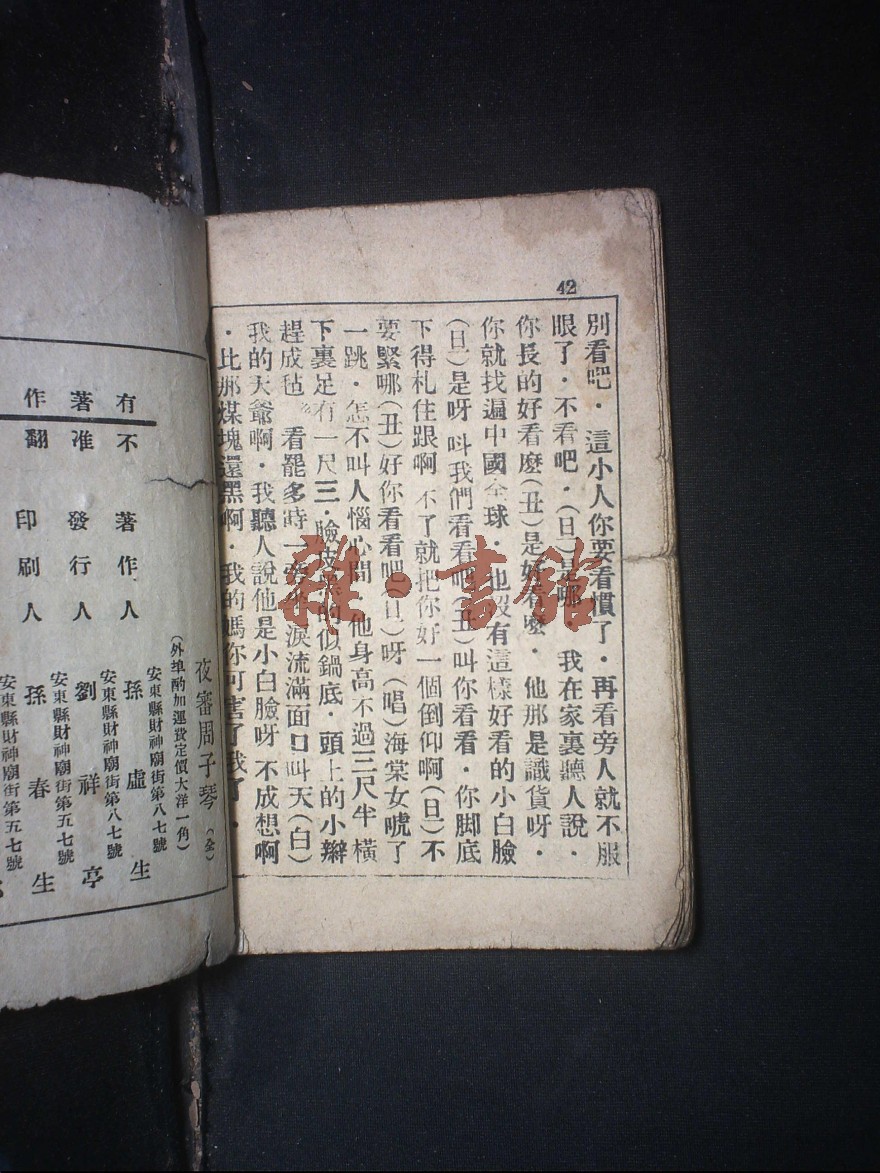 42
別看吧・這小人你要看慣了・再看旁人就不服
眼了・不看吧・(旦)是哪・我在家裏聽人說・
你長的好看麽(丑)是好看麽・他那是識貨呀・
你就找遍中國全球・也沒有這樣好看的小白臉
(旦)是呀 叫我們看看吧(丑)叫你看看・你脚底
下得札住跟啊 不了就把你好一個倒仰啊(旦)不
要緊哪(丑)好你看看吧(旦)呀(唱)海棠女唬了
一跳・怎不叫人惱心間 他身高不過三尺半 橫
下裏足有一尺三・臉皮 的似鍋底・頭上的小辮
趕成毡 看罷多時一旁 淚流滿面口叫天(白)
我的天爺啊・我聽人說他是小白臉呀 不成想啊
・比那煤塊還黑啊・我的媽你可害了我了・
雜・書館
夜審周子琴(全)
(外埠酌加運費定價大洋一角)
安東縣財神廟街第八七號
有不 著作人 孫虛生
安東縣財神廟街第五七號
著准 發行人 劉祥亭
安東縣財神廟街第五七號
作翻 印刷人 孫春生